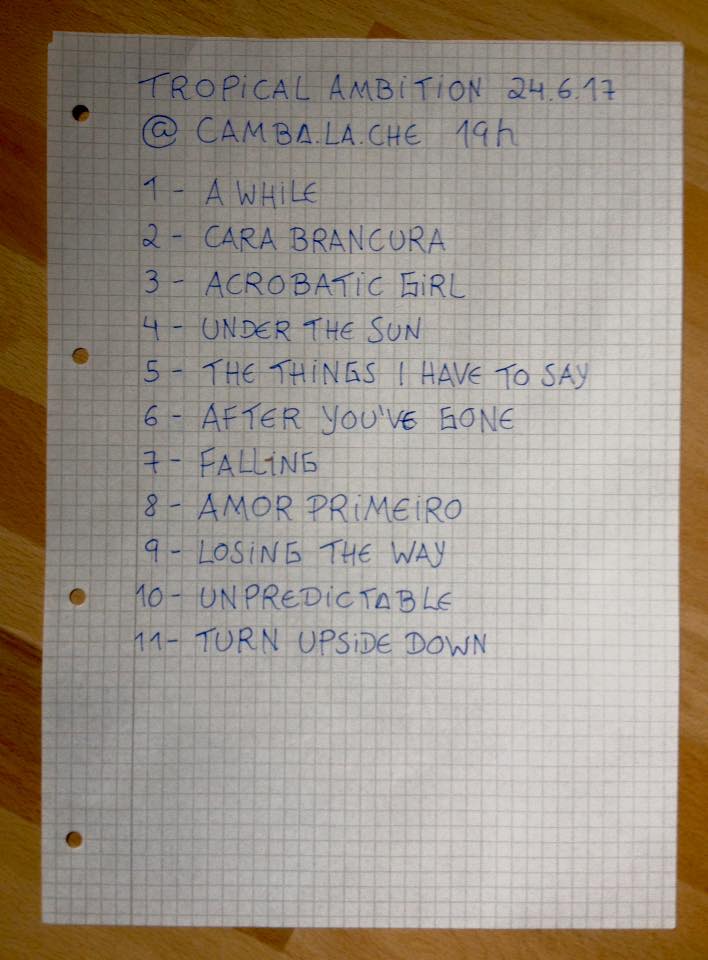 TROPiCAL AMBiTiON 24.6.17
@ CAMBA.LA.CHE 19h
1 - A WHiLE
2 - CARA BRANCURA
3 - ACROBATiC GiRL
4 - UNDER THE SUN
5 - THE THiNGS I HAVE TO SAY
6 - AFTER YOU'VE GONE
7 - FALLiNG
8 - AMOR PRiMEiRO
9 - LOSiNG THE WAY
10 - UNPREDiCTABLE
11 - TURN UPSiDE DOWN